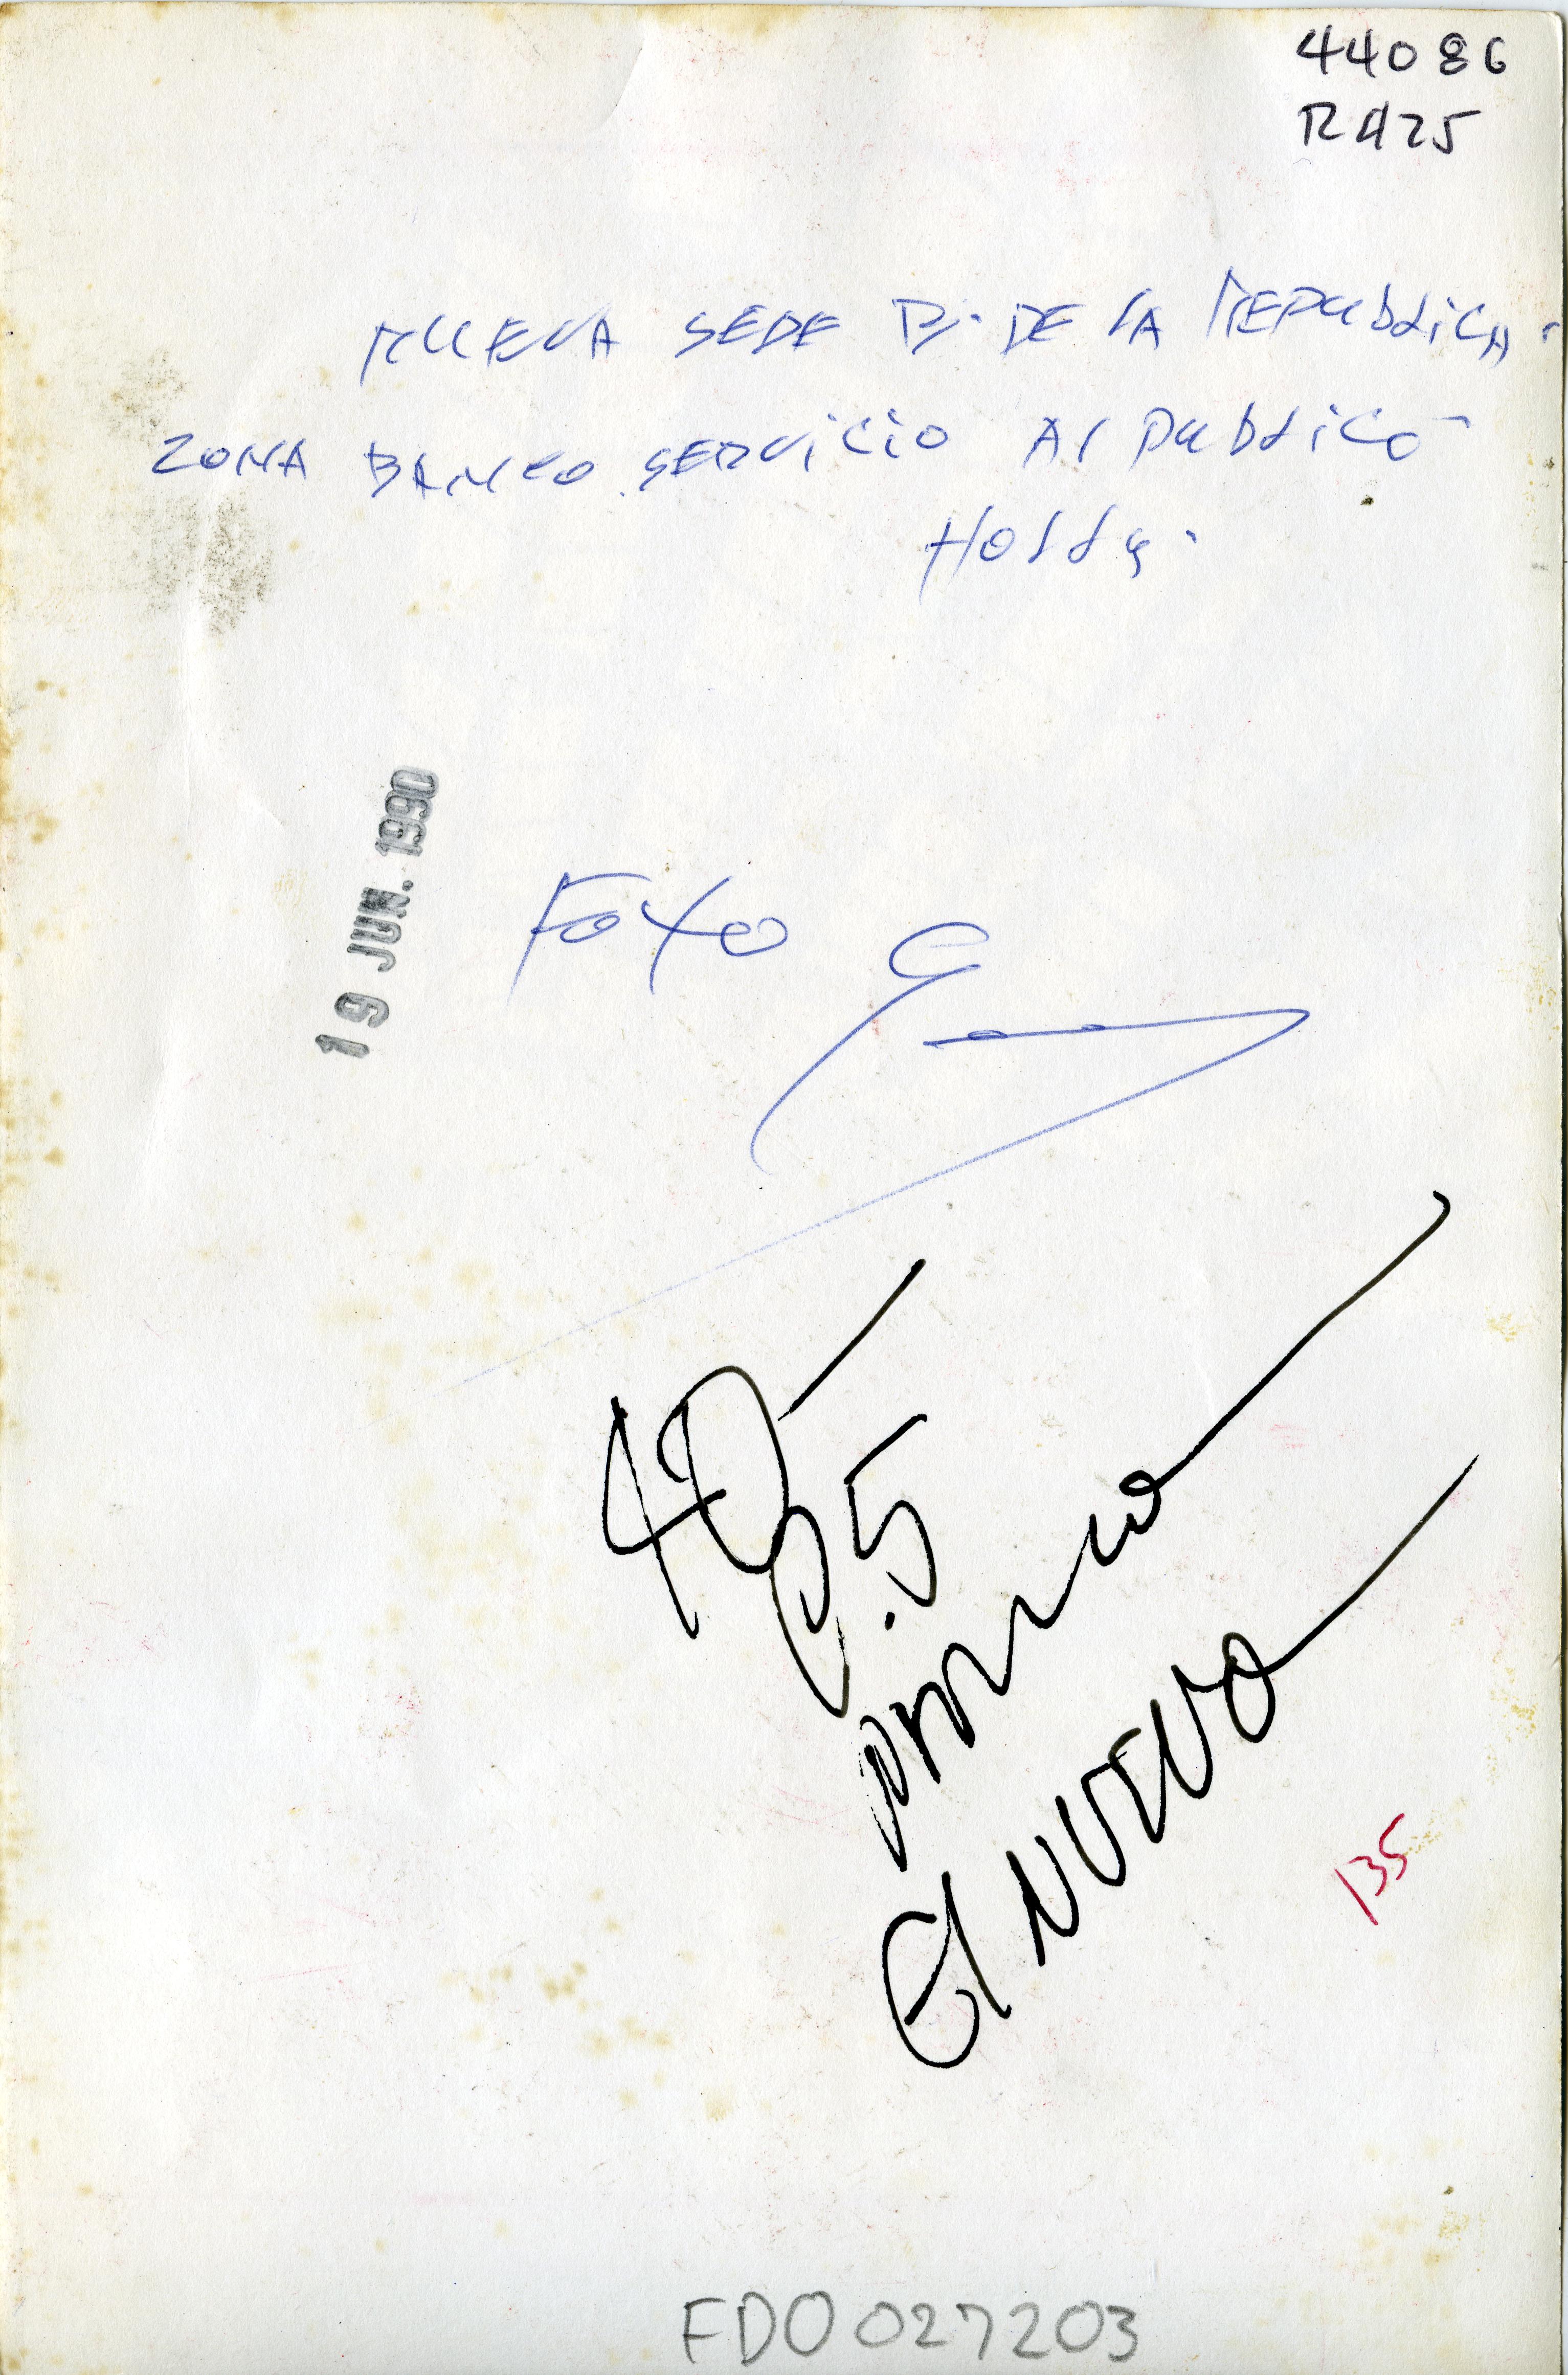 44086
RA25
NUEVA SEDE B. DE LA REPUBLICA.
ZONA BANCO SERVICIO Al PUBLICO
19 JUN. 1990
FOTO
El NUEVO
135
FDO027203